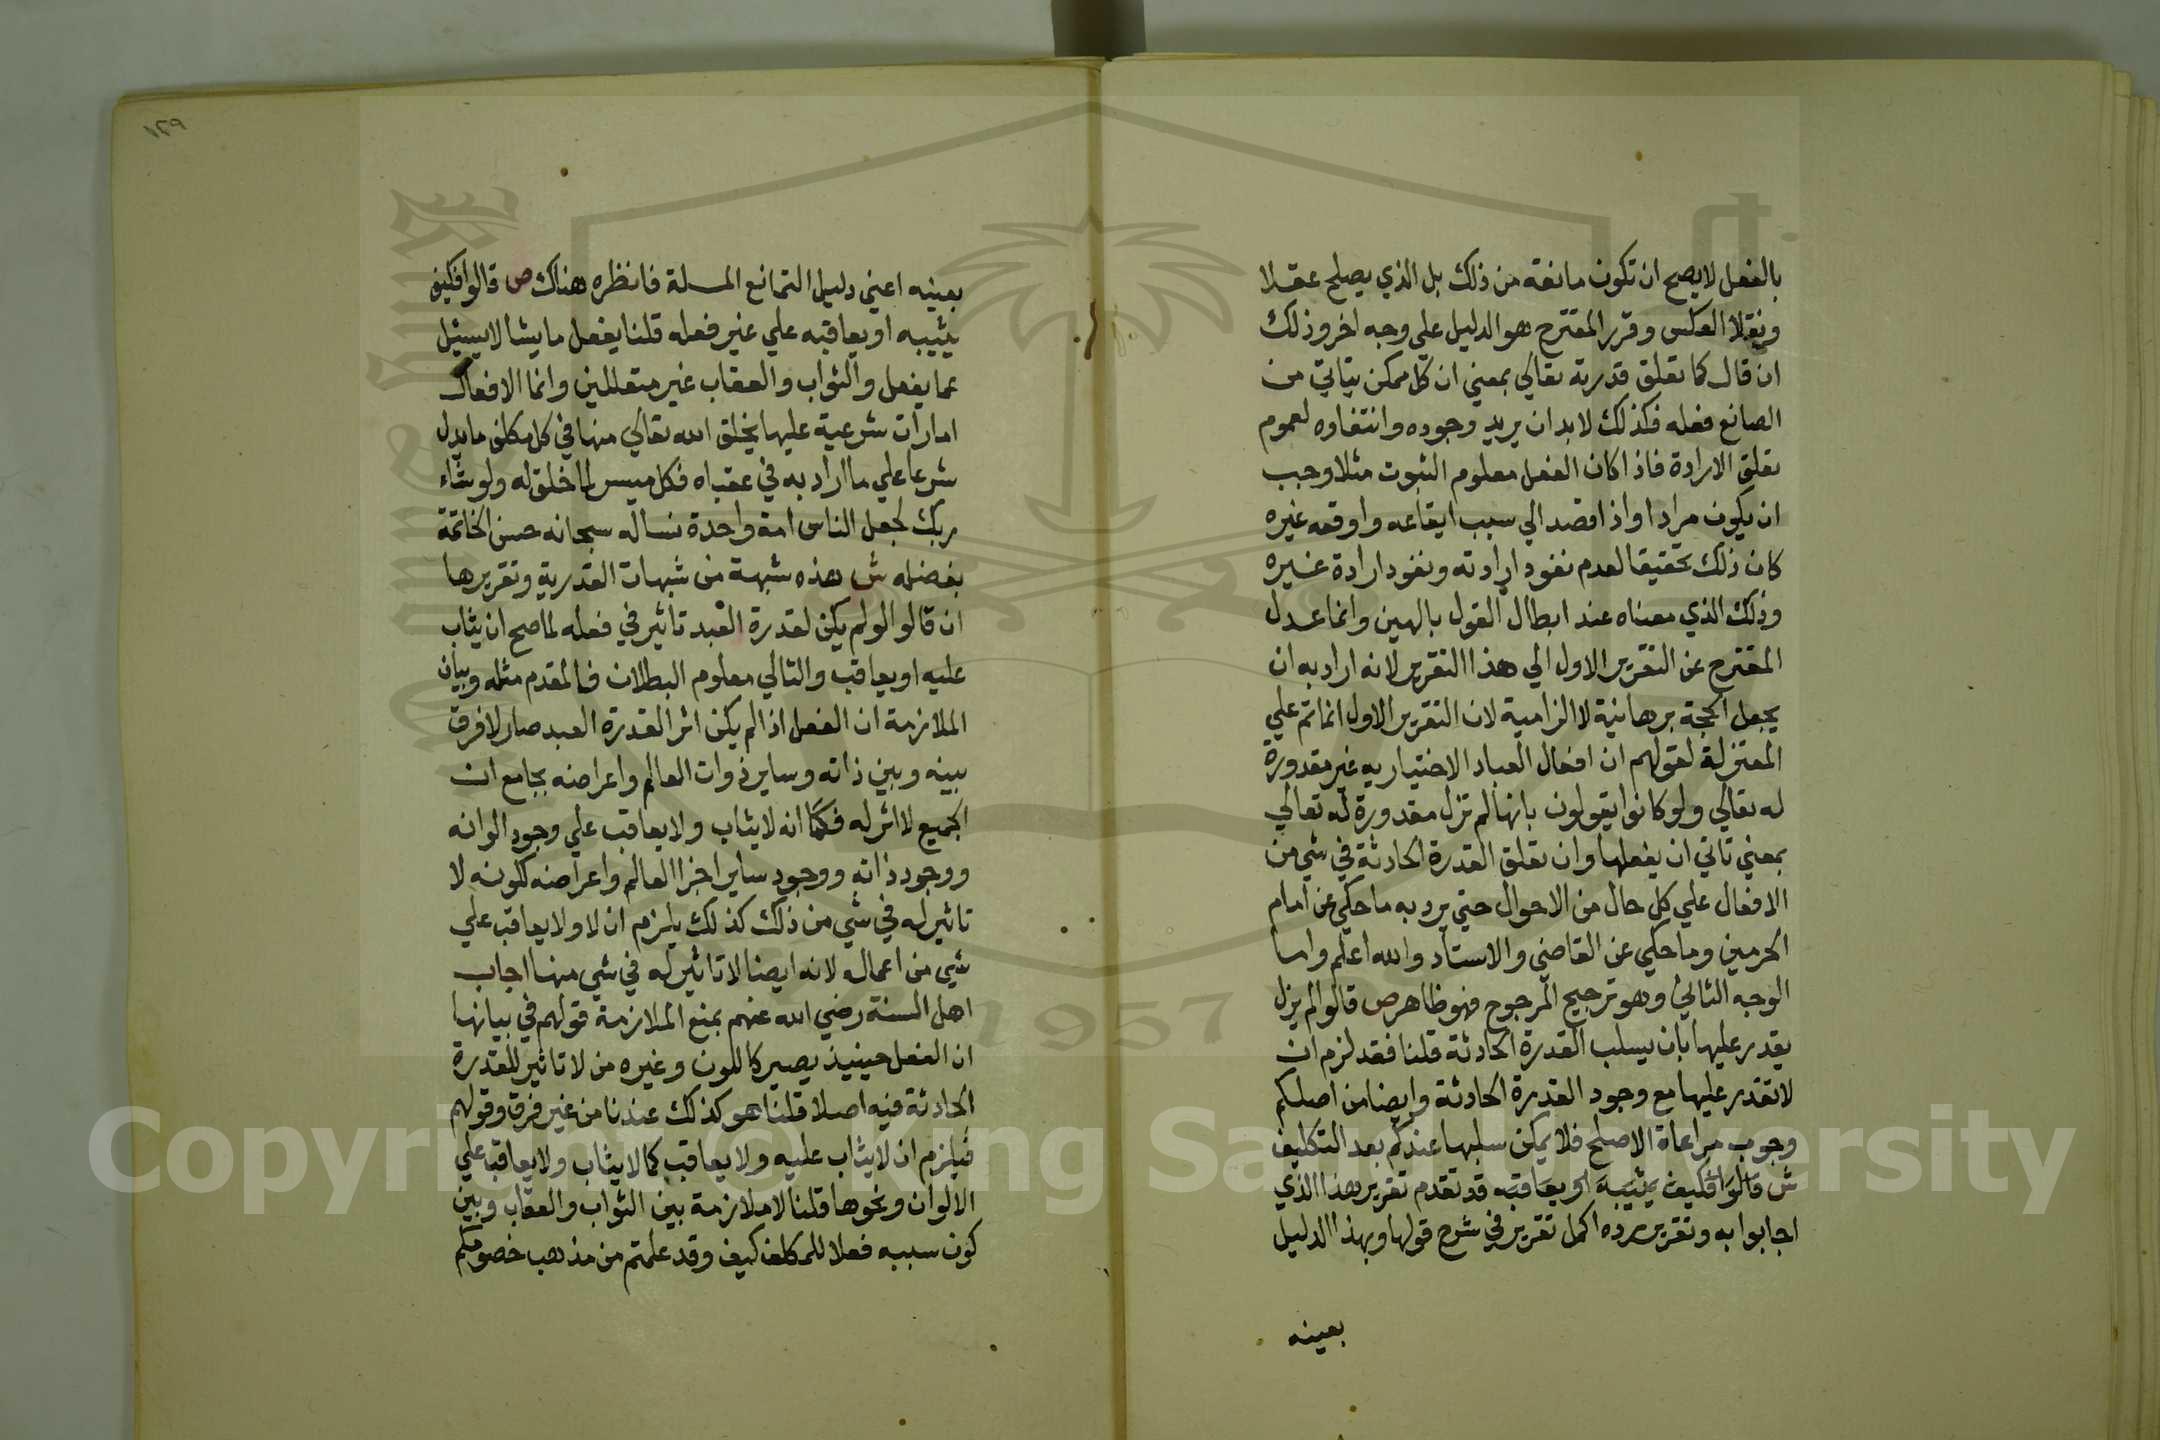 بالفعل لا يصح ان تكون مانعة من ذلك بل الذي يصلح عقلا
ونقلا العكس وقرر المقترح هو الدليل علي وجه اخر وذلك
ان قال كما تعلق قدرته تعالي بمعني ان كل ممكن يتاتي من
الصانع فعله فكذلك لا بد ان يريد وجوده وانتفاوه لعموم
تعلق الارادة فاذا كان الفعل معلوم الثبوت مثلا وجب
ان يكون مرادا واذا قصد الي سبب ايقاعه واوقعه غيره
كان ذلك تحقيقا لعدم نفود ارادته ونفود ارادة غيره
وذلك الذي معناه عند ابطال القول بالهين وانما عدل
المقترح عن التقرير الاول الي هذا التقرير لانه اراد به ان
يجعل الحجة برهانية لا الزامية لان التقرير الاول انما تم علي
المعتزلة لقولهم ان افعال العباد الاختياريه غير مقدورة
له تعالي ولو كانوا يقولون بانها لم تزل مقدورة له تعالي
بمعني تاتي ان يفعلها وان تعلق القدرة الحادثة في شي من
الافعال علي كل حال من الاحوال حتي يرد به ما حكي عن امام
الحرمين وما حكي عن القاضي والاستاد والله اعلم واما
الوجه الثاني وهو ترجيح المرجوح فهو ظاهر ص قالوا لم يزل
يقدر عليها بان يسلب القدرة الحادثة قلنا فقد لزم ان
لا تقدر عليها مع وجود القدرة الحادثة وايضا من اصلكم
وجوب مراعاة الاصلح فلا يمكن سلبها عندكم بعد التكليف
ش قالوا فكيف يثيبه او يعاقبه قد تقدم تقرير هذا الذي
اجابوا به وتقرير رده اكمل تقرير في شرح قولها وبهذا الدليل
بعينه
١٢٩
بعينه اعني دليل التمانع المسلة فانظره هناك ص قالوا فكيف
يثيبه او يعاقبه علي غير فعله قلنا يفعل ما يشا لا يسئل
عما يفعل والثواب والعقاب غير متعللين وانما الافعال
امارات شرعية عليها يخلق الله تعالي منها في كل مكلف ما يدل
شرعا علي ما اراد به في عقباه فكل ميسر لما خلق له ولو شاء
ربك لجعل الناس امة واحدة نساله سبحانه حسن الخاتمة
بفضله ش هذه شبهة من شبهات القدرية وتقريرها
ان قالوا لو لم يكن لقدرة العبد تاثير في فعله لما صح ان يثاب
عليه او يعاقب والتالي معلوم البطلان فالمقدم مثله وبيان
الملازمة ان الفعل اذا لم يكن اثرا لقدرة العبد صار لا فرق
بينه وبين ذاته وساير ذوات العالم واعراضه بجامع ان
الجميع لا اثر له فكما انه لا يثاب ولا يعاقب علي وجود الوانه
ووجود ذاته ووجود ساير اجزا العالم واعراضه لكونه لا
تاثير له في شي من ذلك كذلك يلزم ان لا ولا يعاقب علي
شي من اعماله لانه ايضا لا تاثير له في شي منها اجاب
اهل السنة رضي الله عنهم بمنع الملازمة قولهم في بيانها
ان الفعل حينيذ يصير كاللون وغيره من لا تاثير للقدرة
الحادثة فيه اصلا قلنا هو كذلك عندنا من غير فرق وقولهم
فيلزم ان لا يثاب عليه ولا يعاقب كما لا يثاب ولا يعاقب علي
الالوان ونحوها قلنا لا ملازمة بين الثواب والعقاب وبين
كون سببه فعلا للمكلف كيف وقد علمتم من مذهب خصومكم
Copyright © King Saud University
1957